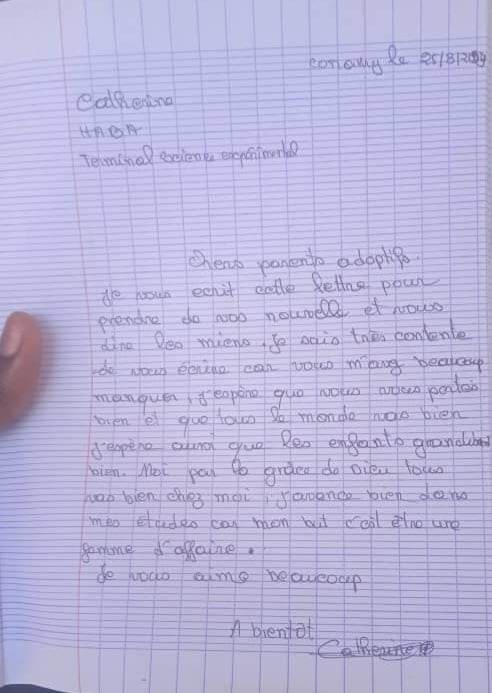 conakry le 25/8/2024
Catherine
HABA
Terminal science expérimental
Chers parents adoptifs.
Je vous ecrit cette lettre pour
prendre de vos nouvelle et vous
dire les miens. Je suis très contente
de vous écrire car vous m'avez beaucoup
manquer, j'espère que vous vous portes
bien et que tous le monde vas bien
j'espère aussi que les enfants grandissent
bien. Moi par la grâce de Dieu tous
vas bien chez moi, j'avance bien dans
mes études car mon but c'est être une
famme d'affaire.
Je vous aime beaucoup
A bientôt
Catherine